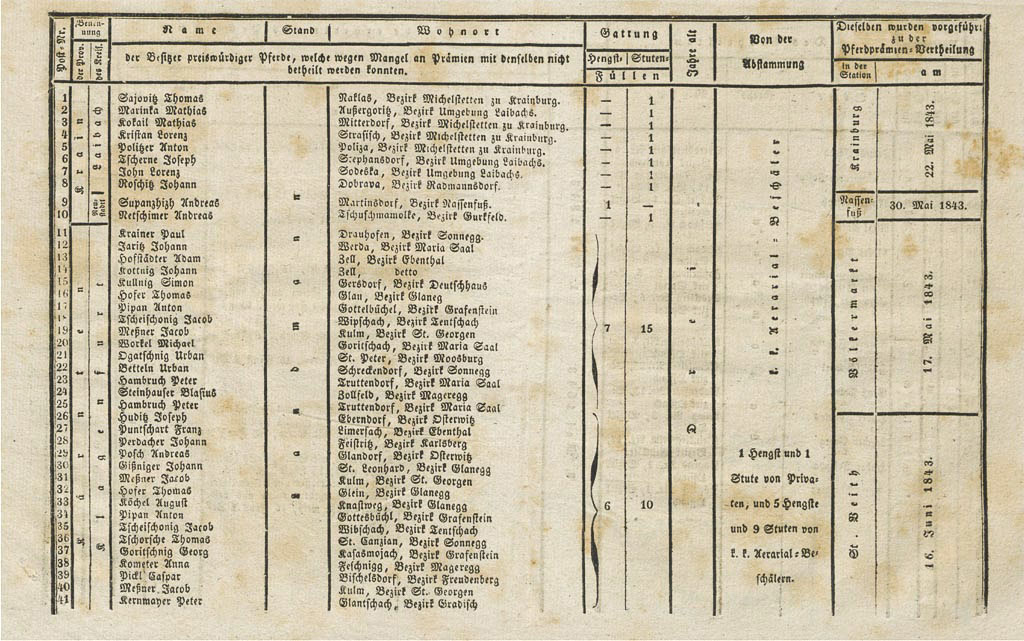 Post-Nr.
Benennung
der Prov.
des Kreis.
Name | Stand | Wohnort
der Besitzer preiswürdiger Pferde, welche wegen Mangel an Prämien mit denselben nicht
betheilt werden konnten.
Gattung
Hengst- | Stuten-
Füllen
Jahre alt
Von der
Abstammung
Dieselben wurden vorgeführt
zu der
Pferdprämien-Vertheilung
in der
Station
am
Krain
Laibach
Neustadtl
Klagenfurt
Drei
k. k. Aerarial-Beschäler
1 Sajovitz Thomas Naklas, Bezirk Michelstetten zu Krainburg. — 1
2 Marinka Mathias Außergoritz, Bezirk Umgebung Laibachs. — 1
3 Kokail Mathias Mitterdorf, Bezirk Michelstetten zu Krainburg. — 1
4 Kristan Lorenz Strasisch, Bezirk Michelstetten zu Krainburg. — 1
5 Politzer Anton Poliza, Bezirk Michelstetten zu Krainburg. — 1
6 Tscherne Joseph Stephansdorf, Bezirk Umgebung Laibachs. — 1
7 John Lorenz Sodeska, Bezirk Umgebung Laibachs. — 1
8 Roschitz Johann Dobrava, Bezirk Radmannsdorf. — 1
Krainburg
22. Mai 1843.
9 Supanzhizh Andreas Martinsdorf, Bezirk Nassenfuß. 1 —
10 Netschimer Andreas Tschuschmamolke, Bezirk Gurkfeld. — 1
Nassenfuß
30. Mai 1843.
11 Krainer Paul Drauhofen, Bezirk Sonnegg.
12 Jaritz Johann Werda, Bezirk Maria Saal
13 Hofstädter Adam Zell, Bezirk Ebenthal
14 Kottnig Johann Zell, detto
15 Kullnig Simon Gersdorf, Bezirk Deutschhaus
16 Hofer Thomas Glau, Bezirk Glaneg
17 Pipan Anton Gottelbüchel, Bezirk Grafenstein
18 Tscheischonig Jacob Wipschach, Bezirk Tentschach
19 Meßner Jacob Kulm, Bezirk St. Georgen
20 Workel Michael Goritschach, Bezirk Maria Saal
21 Ogatschnig Urban St. Peter, Bezirk Moosburg
22 Betteln Urban Schreckendorf, Bezirk Sonnegg
23 Hambruch Peter Truttendorf, Bezirk Maria Saal
24 Steinhauser Blasius Zollfeld, Bezirk Mageregg
25 Hambruch Peter Truttendorf, Bezirk Maria Saal
7 15
Völkermarkt
17. Mai 1843.
26 Huditz Joseph Eberndorf, Bezirk Osterwitz
27 Puntschart Franz Limersach, Bezirk Ebenthal
28 Perdacher Johann Feistritz, Bezirk Karlsberg
29 Posch Andreas Glandorf, Bezirk Osterwitz
30 Gißniger Johann St. Leonhard, Bezirk Glanegg
31 Meßner Jacob Kulm, Bezirk St. Georgen
32 Hofer Thomas Glein, Bezirk Glanegg
33 Köchel August Knasweg, Bezirk Glanegg
34 Pipan Anton Gottesbüchl, Bezirk Grafenstein
35 Tscheischonig Jacob Wibschach, Bezirk Tentschach
36 Tschorsche Thomas St. Canzian, Bezirk Sonnegg
37 Goritschnig Georg Kasasmojach, Bezirk Grafenstein
38 Kometer Anna Feschnigg, Bezirk Mageregg
39 Pickl Caspar Bischelsdorf, Bezirk Freudenberg
40 Meßner Jacob Kulm, Bezirk St. Georgen
41 Kernmayer Peter Glantschach, Bezirk Gradisch
6 10
1 Hengst und 1
Stute von Priva-
ten, und 5 Hengste
und 9 Stuten von
k. k. Aerarial-Be-
schälern.
St. Veith
16. Juni 1843.